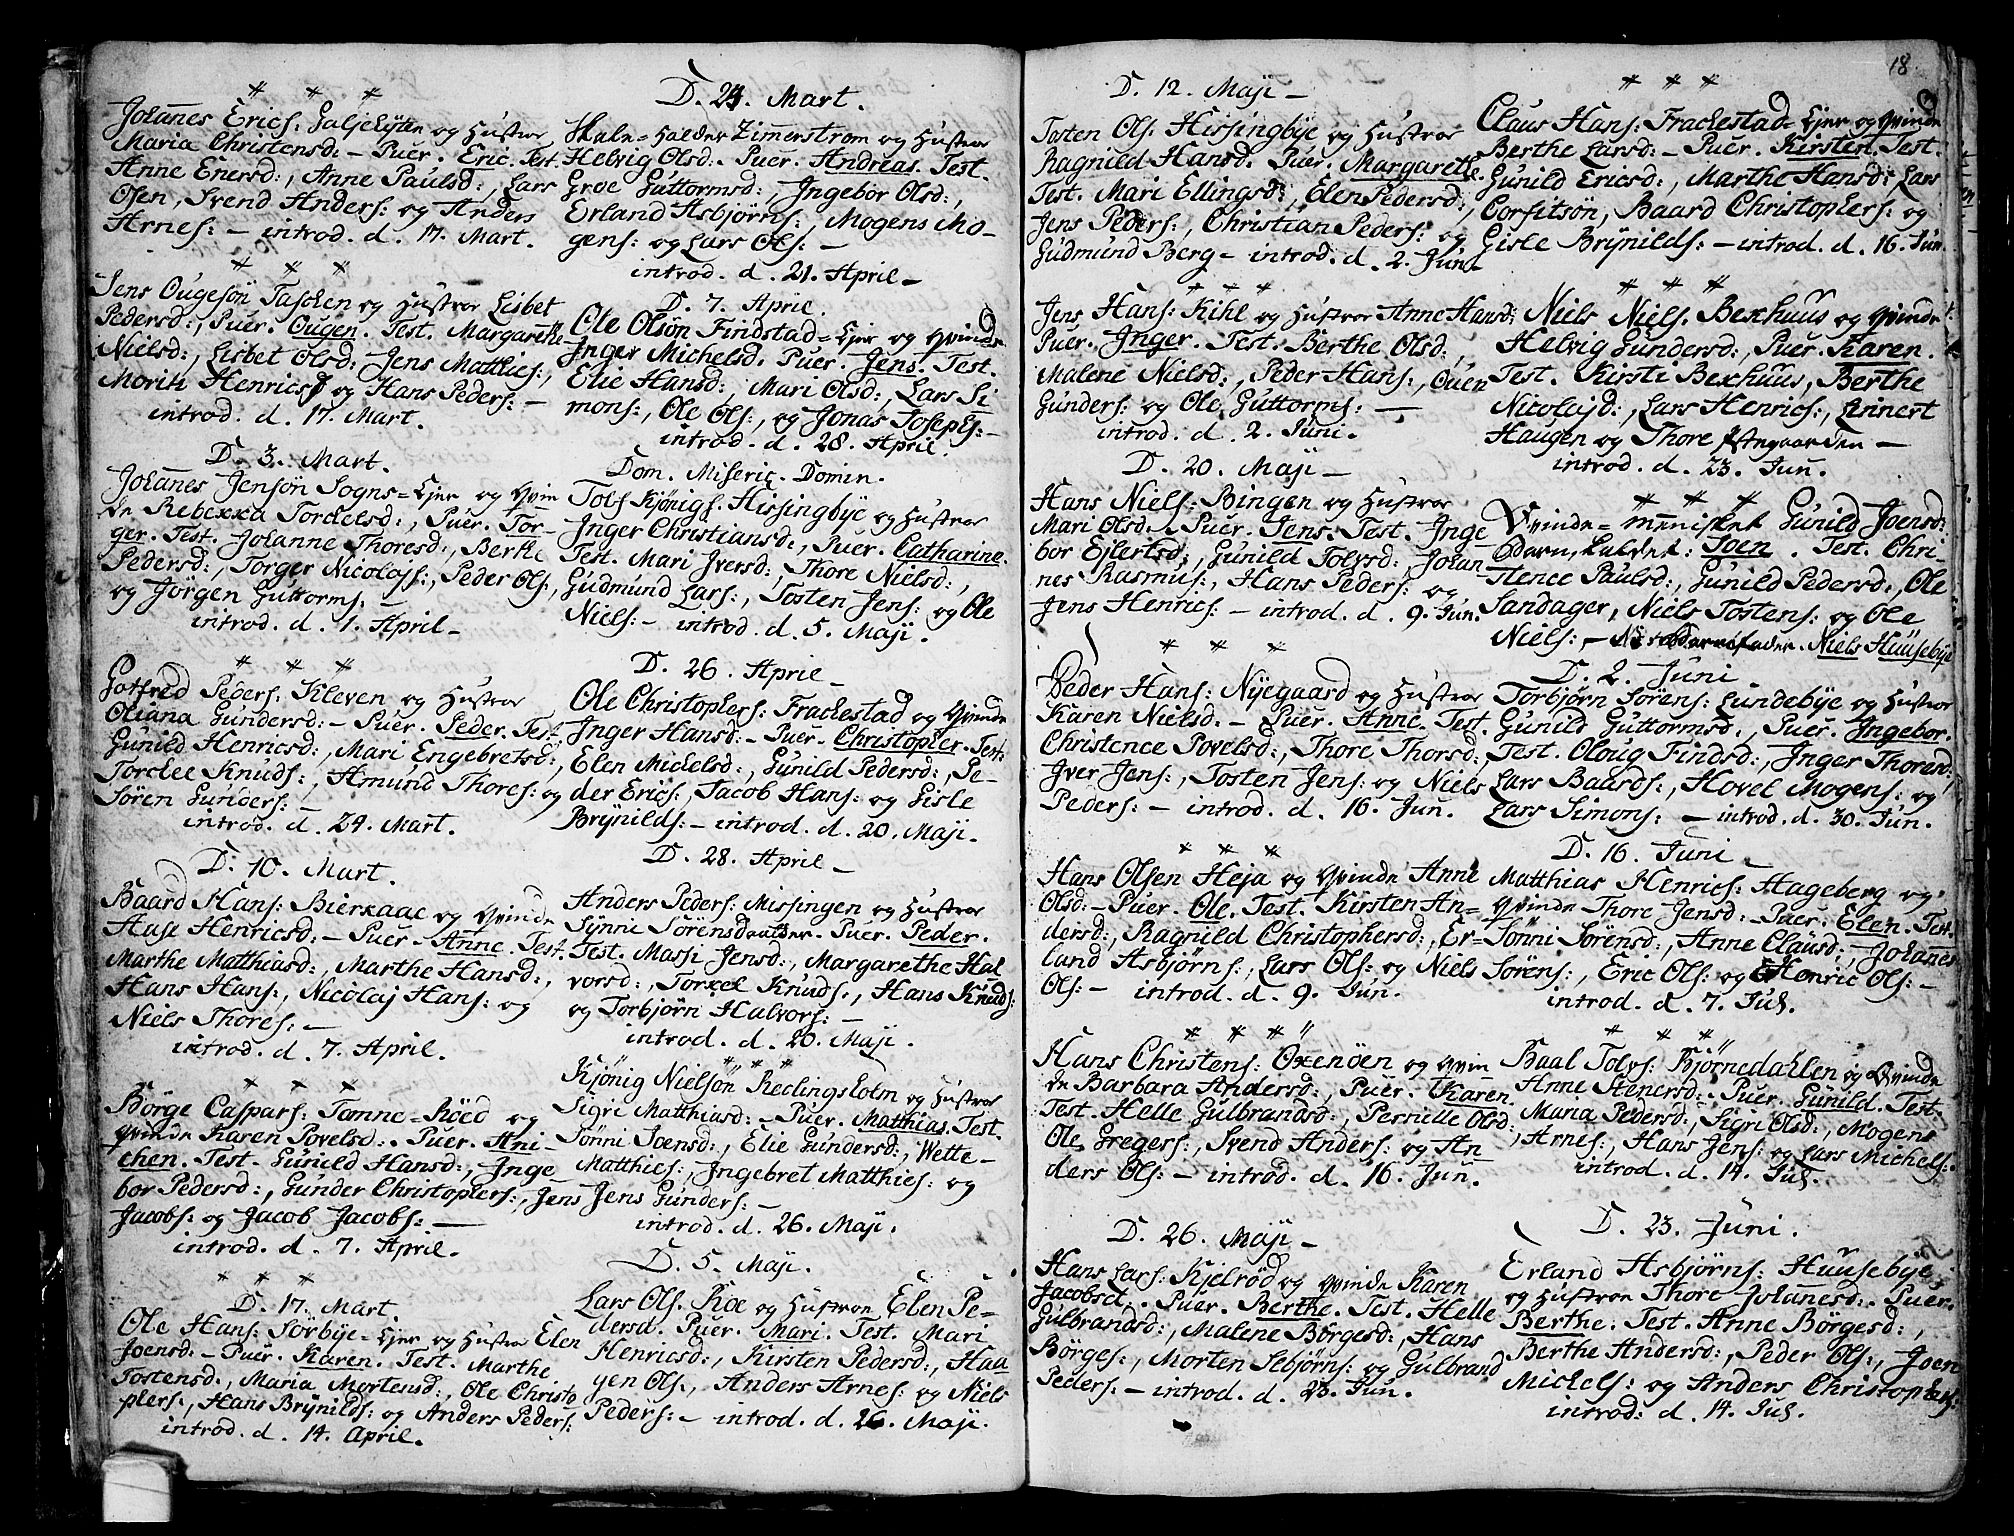 * * *
Johannes Erics: Galjehyten og Hustroe
Maria Christensd: – Puer. Eric. Test.
Anne Enersd:, Anne Paulsd:, Lars
Olsen, Svend Anders: og Anders
Arnes: – introd. d. 17. Mart.
* * *
Jens Ougesön Taschen og Hustroe Lisbet
Pedersd:, Puer. Ougen. Test. Margarethe
Nielsd:, Lisbet Olsd: Jens Matthies:,
Moritz Henrics: og Hans Peders: –
introd. d. 17. Mart.
D. 3. Mart.
Johannes Jensön Sogns=Ejer og Qvin
de Rebekka Torckelsd:, Puer. Tor-
ger. Test. Johanne Thoresd:, Berthe
Pedersd:, Torger Nicolajs:, Peder Ols:,
og Jörgen Guttorms: –
introd. d. 1. April –
* * *
Gotfred Peders: Kleven og Hustroe
Oliana Gundersd: – Puer. Peder. Test.
Gunild Henricsd:, Mari Engebretsd:,
Torckel Knuds:, Amund Thores: og
Sören Gunders: –
introd. d. 24. Mart.
D. 10. Mart.
Baard Hans: Bierkaae og Qvinde
Hase Henricsd: – Puer – Anne. Test.
Marthe Matthiasd:, Marthe Hansd:,
Hans Hans:, Nicolaj Hans: og
Niels Thores: –
introd. d. 7. April.
* * *
Börge Caspars: Tomne=Röed og
Qvinde Karen Povelsd:. Puer. Ani-
chen. Test. Gunild Hansd:, Inge
bor Pedersd:, Gunder Christophers:, Jens
Jacobs: og Jacob Jacobs: –
introd. d. 7. April.
* * *
D. 17. Mart.
Ole Hans: Sörbye=Ejer og Hustroe Elen
Joensd: – Puer. Karen. Test. Marthe
Tostensd:, Maria Mortensd:, Ole Christo
phers:, Hans Brynilds: og Anders Peders:
introd. d. 14. April.
D. 24. Mart.
Helvig Olsd:. Puer. Andreas. Test.
Groe Guttormsd:, Ingebor Olsd:,
Erland Asbjörns:, Mogens Mo-
gens: og Lars Ols: –
introd. d. 21. April –
D. 7. April.
Ole Olsön Findstad=Ejer og Qvinde
Inger Michelsd. Puer. Jens. Test.
Elie Hansd:, Mari Olsd:, Lars Si
mons:, Ole Ols:, og Jonas Josephs: –
introd. d. 28. April.
Dom. Miseric. Domin.
Tolf Kjönigs. Hissingbye og Hustroe
Inger Christiansd:, Puer. Catharine.
Test. Mari Iversd:, Thore Nielsd:,
Gudmund Lars:, Tosten Jens: og Ole
Niels: – introd. d. 5. Maji.
D. 26. April –
Ole Christophers: Frackestad og Qvinde
Inger Hansd: – Puer. Christopher. Test:
Elen Michelsd:, Gunild Pedersd:, Pe-
der Erics:, Jacob Hans: og Gisle
Brynilds: – introd. d. 20. Maji.
D. 28. April –
Anders Peders: Missingen og Hustroe
Synni Sörensdatter. Puer. Peder.
Test. Massi Jensd:, Margarethe Hal
vorsd:, Torkel Knuds:, Hans Knuds:
og Torbjörn Halvors: –
introd. d. 20. Maji.
* * *
Kjönig Nielsön Reclingsholm og Hustroe
Sigri Matthiasd: – Puer. Matthias. Test.
Sönni Joensd:, Elie Gundersd:, Wette-
Matthies:, Ingebret Matthies: og
Jens Gunders: –
introd. d. 26. Maji.
D. 5. Maji.
Lars Ols. Röe og Hustroe Elen Pe-
dersd. Puer. Mari. Test. Mari
Henricsd:, Kirsten Pedersd:, Haa
gen Ols:, Anders Arnes: og Niels
Peders: – introd. d. 26. Maji.
D. 12. Maji –
Tosten Ols: Hissingbye og Hustroe
Ragnild Hansd. Puer. Margarethe
Test. Mari Ellingsd:, Elen Pedersd:,
Jens Peders:, Christian Peders: og
Gudmund Berg – introd. d. 2. Jun.
* * *
Jens Hans: Kihl og Hustroe Anne Hansd:
Puer. Inger. Test. Berthe Olsd:,
Malene Nielsd:, Peder Hans:, Ouen
Gunders: og Ole Guttorms: –
introd. d. 2. Juni.
D. 20. Maji –
Hans Niels: Bingen og Hustroe
Mari Olsd:. Puer. Jens. Test. Inge
bor Ejlertsd:, Gunild Tolvsd:, Johan-
nes Rasmus:, Hans Peders: og
Jens Henrics: – introd. d. 9. Jun.
* * *
Peder Hans: Nyegaard og Hustroe
Karen Nielsd. – Puer. Anne. Test.
Christence Povelsd:, Thore Thorsd:,
Iver Jens:, Tosten Jens: og Niels
Peders: – introd. d. 16. Jun.
* * *
Hans Olsen Heja og Qvinde Anne
Olsd: – Puer. Ole. Test. Kirsten An=
dersd:, Ragnild Christophersd:, Er=
land Asbjörns:, Lars Ols: og Niels
Ols: – introd. d. 9. Jun.
* * *
Hans Christens: Oxenöen og Qvin
de Barbara Andersd:, Puer. Karen.
Test. Helle Gulbrandsd:, Pernille Olsd:,
Ole Gregers:, Svend Anders: og An
ders Ols: – introd. d. 16. Jun.
D. 26. Maji –
Hans Lars: Kjelröd og Qvinde Karen
Jacobsd. Puer. Berthe. Test. Helle
Gulbrandsd:, Malene Börgesd:, Hans
Börges:, Morten Sebjörns: og Gulbrand
Peders: – introd. d. 23. Jun.
18
* * *
Claus Hans: Frackestad=Ejer og Qvinde
Berthe Larsd: – Puer. Kirsten. Test.
Gunild Ericsd:, Marthe Hansd:, Lars
Corfitsön, Baard Christophers: og
Gisle Brynilds: – introd. d. 16. Jun.
* * *
Niels Niels. Bexhuus og Qvinde
Helvig Gundersd:, Puer. Karen.
Test. Kirsti Bexhuus, Berthe
Nicolajd:, Lars Henrics:, Lennert
Haugen og Thore Ostegaarden –
introd. d. 23. Jun.
* * *
Qvinde=mennisket Gunild Joensd:
Barn, kaldet: Joen. Test. Chri-
stence Paulsd:, Gunild Pedersd:, Ole
Sandager, Niels Tostens: og Ole
Niels: – Barnefader. Niels Huusebye
D. 2. Juni.
Torbjörn Sörens: Lundebye og Hustroe
Gunild Guttormsd:, Puer. Ingebor.
Test. Oloug Findsd:, Inger Thoresd:,
Lars Baards:, Hovel Mogens: og
Lars Simons: – introd. d. 30. Jun.
D. 16. Juni –
Matthias Henrics: Hageberg og
Qvinde Thore Jensd: – Puer. Elen. Test.
Sönni Sörensd:, Anne Clausd:, Johannes
Sörens:, Eric Ols: og Henric Ols: –
introd. d. 7. Jul.
* * *
Baal Tolvs: Björnedahlen og Qvinde
Anne Stenersd:. Puer. Gunild. Test.
Maria Pedersd:, Sigri Olsd:, Mogens
Arnes:, Hans Jens: og Lars Michels:.
introd. d. 14. Jul.
D. 23. Juni.
Erland Asbjörns: Huusebye
og Hustroe Thore Johannesd:. Puer.
Berthe. Test. Anne Börgesd:,
Berthe Andersd:, Peder Ols:, Joen
Michels: og Anders Christophers:
introd: d. 14. Jul.